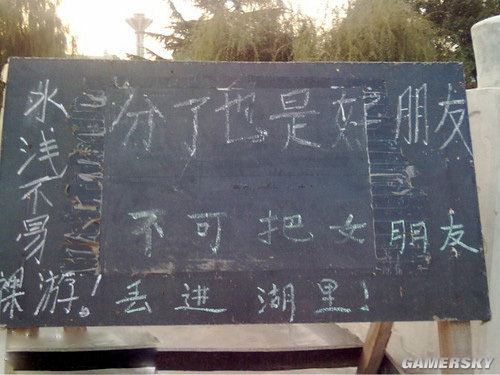 水浅不易裸游！
分了也是好朋友
不可把女朋友
丢进湖里！
GAMERSKY